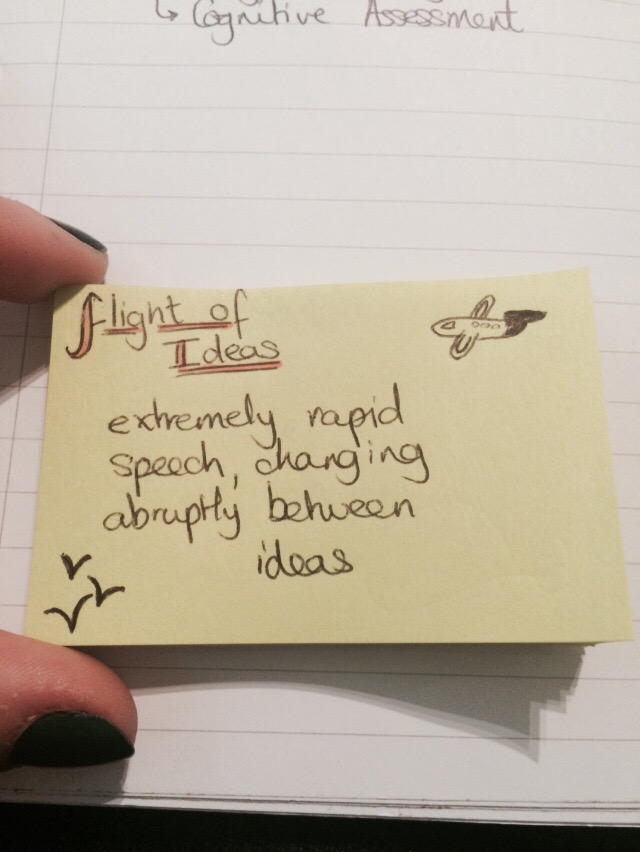 ↳ Cognitive Assessment
flight of
Ideas
extremely rapid
speech, changing
abruptly between
ideas